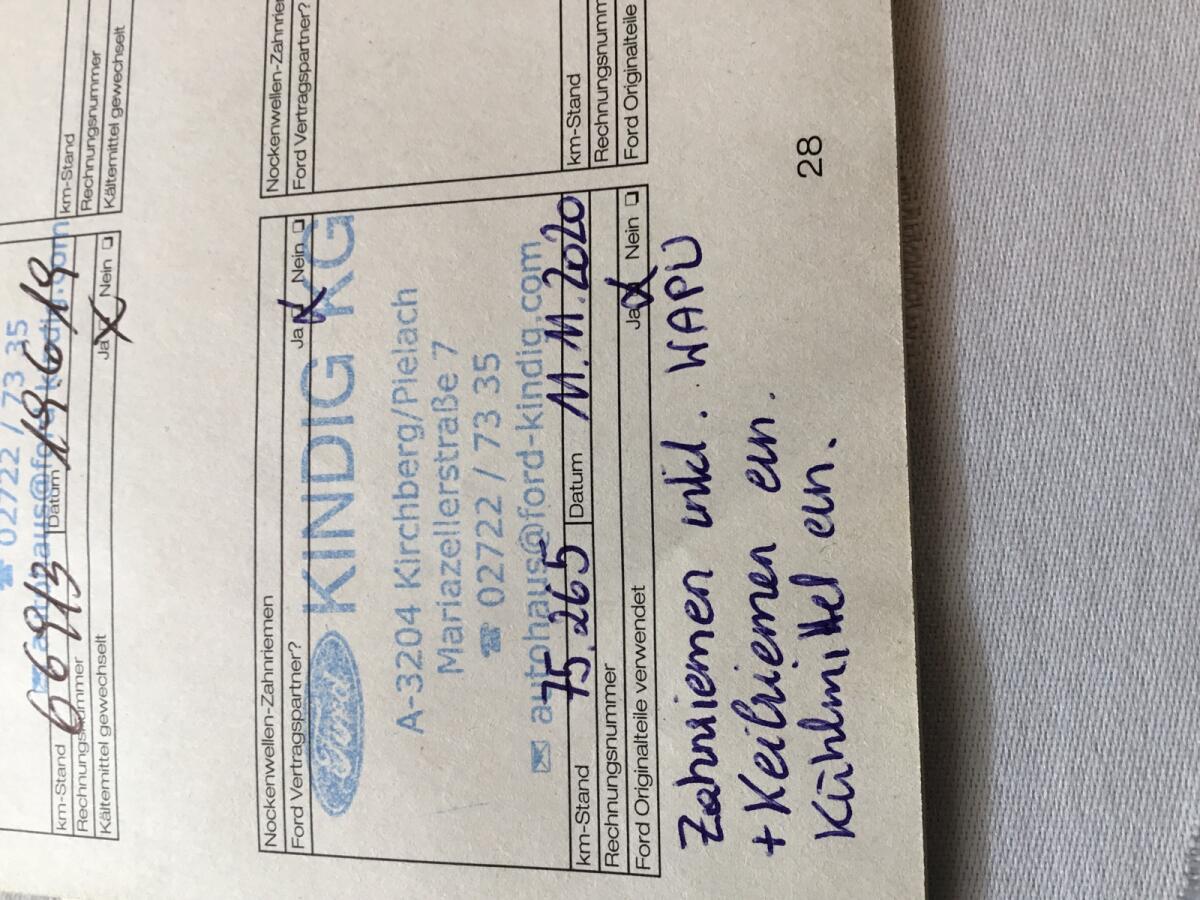 ☎ 02722 / 73 35
km-Stand 66943 Datum 19.6.19
Rechnungsnummer
Kältemittel gewechselt Ja X Nein
km-Stand
Rechnungsnummer
Kältemittel gewechselt
Nockenwellen-Zahnriemen
Ford Vertragspartner? Ja X Nein
Ford KINDIG KG
A-3204 Kirchberg/Pielach
Mariazellerstraße 7
☎ 02722 / 73 35
✉ autohaus@ford-kindig.com
km-Stand 75.265 Datum 11.11.2020
Rechnungsnummer
Ford Originalteile verwendet Ja X Nein
Nockenwellen-Zahnriem
Ford Vertragspartner?
km-Stand
Rechnungsnumm
Ford Originalteile
Zahnriemen inkl. WAPU
+ Keilriemen ern.
Kühlmittel ern.
28